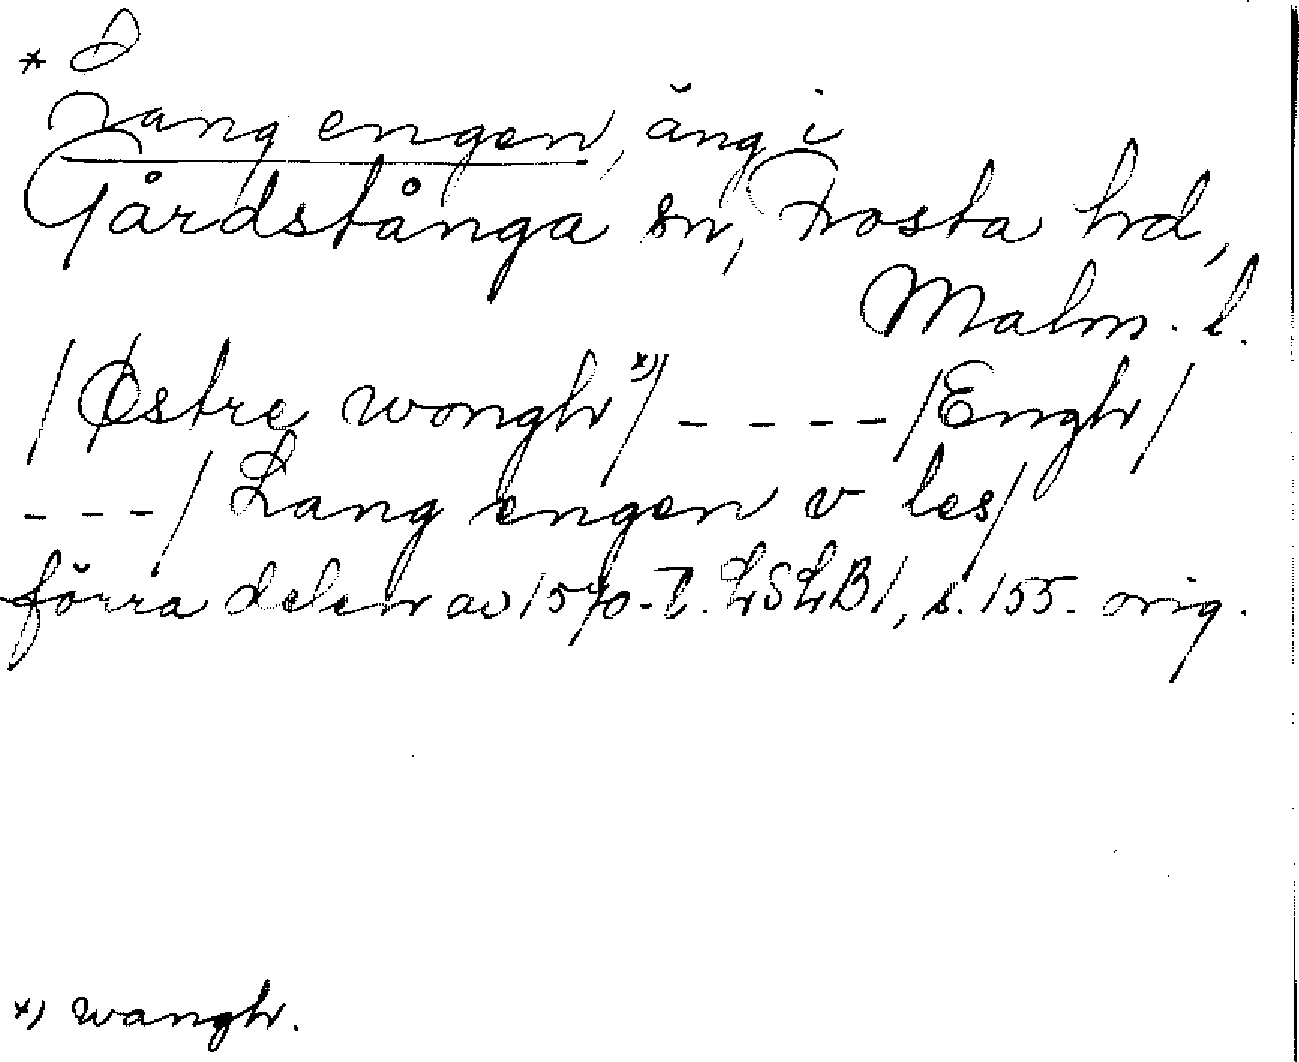 * Lang engen, äng i
Gårdstånga sn, Frosta hd,
Malm. l.
/Østre wongh *)/ - - - - /Engh/
- - - / Lang engen v les/
förra delen av 1570-t. LSLB1, s. 155 orig.
*) wangh.